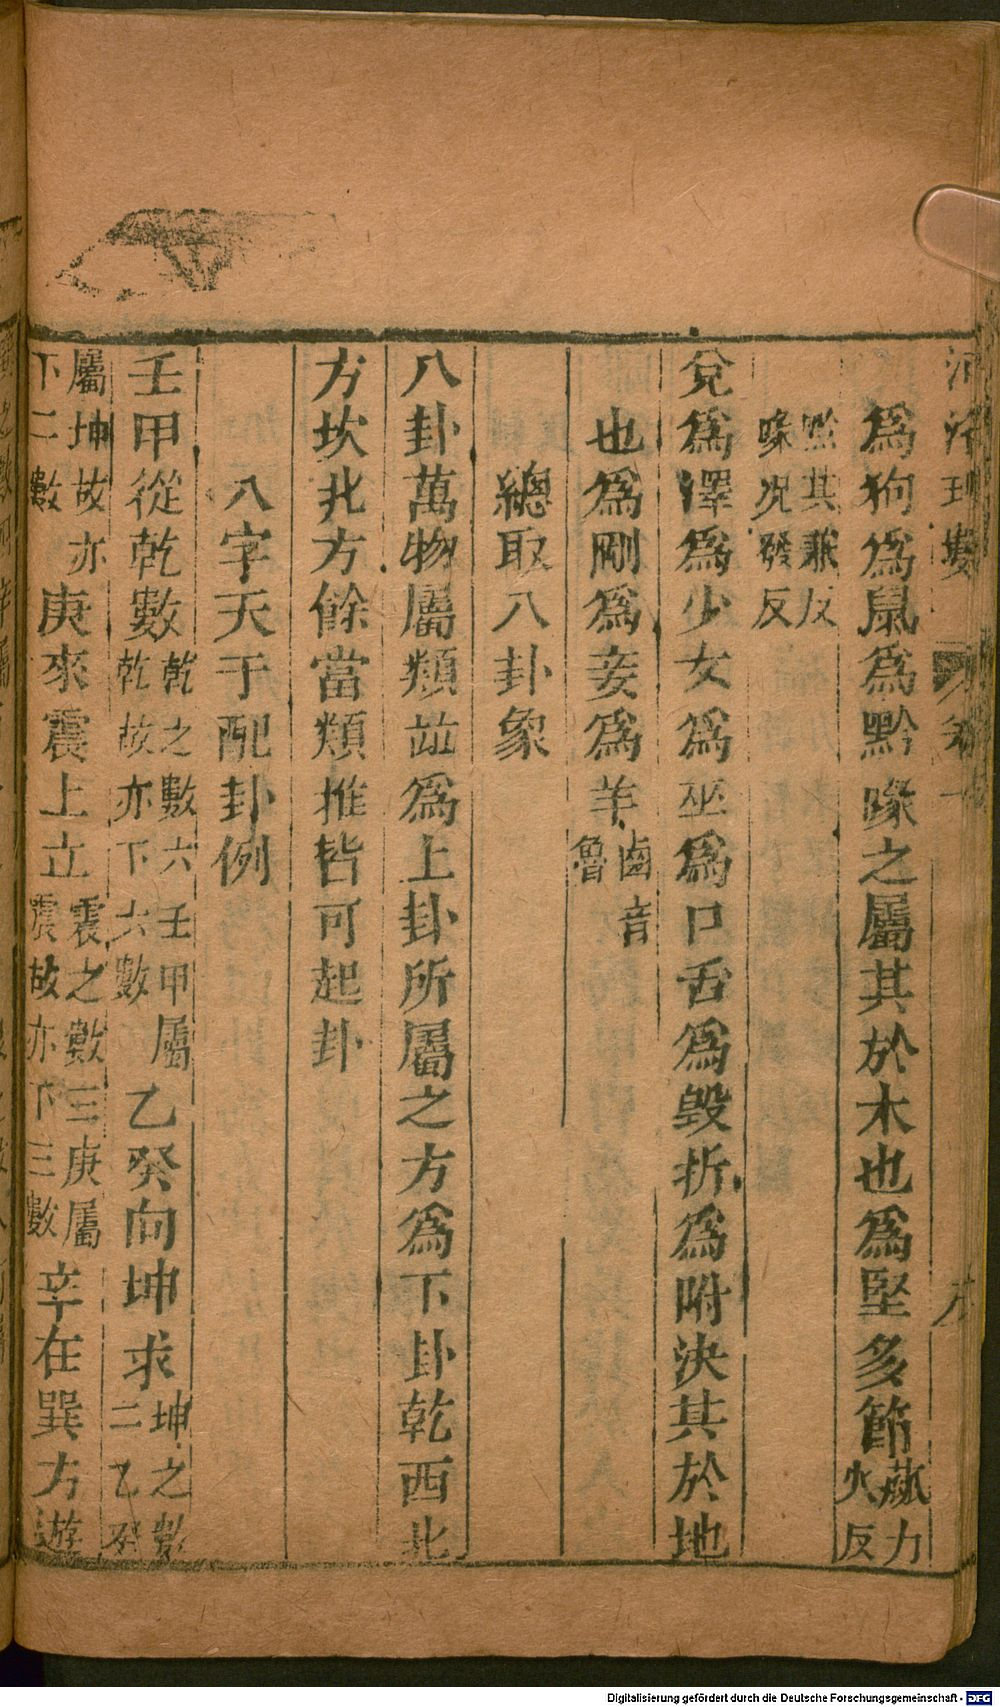 河洛理數 卷一 六
爲狗爲鼠爲黔喙之屬其於木也爲堅多節蓏力火反
黔其兼反喙况發反
兌爲澤爲少女爲巫爲口舌爲毀折爲附決其於地
也爲剛爲妾爲羊鹵音魯
總取八卦象
八卦萬物屬類並爲上卦所屬之方爲下卦乾西北
方坎北方餘當類推皆可起卦
八字天干配卦例
壬甲從乾數乾之數六壬甲屬乾故亦下六數乙癸向坤求坤之數二乙癸
屬坤故亦下二數庚來震上立震之數三庚屬震故亦下三數辛在巽方遊
Digitalisierung gefördert durch die Deutsche Forschungsgemeinschaft - DFG